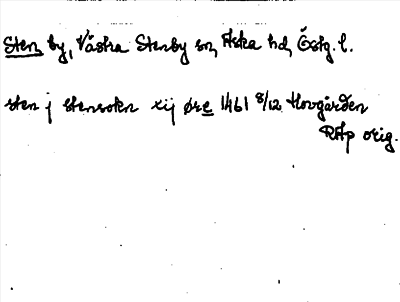 Sten by, Västra Stenby sn, Aska hd, Östg. l.
sten j stensokn xij øre 1461 8/12 Hovgården
RAp orig.